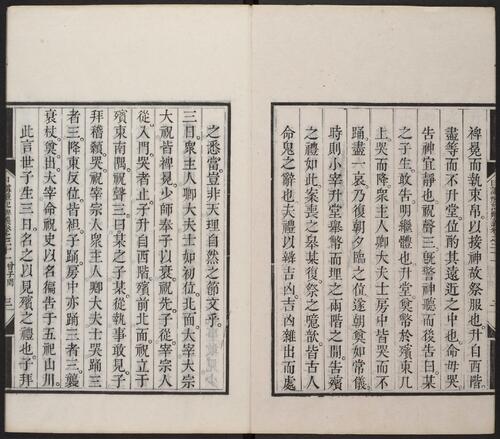 裨冕而執束帛以接神故祭服也升自西階
盡等而不升堂位酌其遠近之中也命毋哭
告神宜靜也祝聲三既警神聽而後告曰某
之子生敢告明繼體也升堂奠幣於殯東几
上哭而降衆主人卿大夫士房中皆哭而不
踊盡一哀乃復朝夕臨之位遂朝奠如常儀
時則小宰升堂舉幣而埋之兩階之間告殯
之禮如此案喪之皋某復祭之噫歆皆古人
命鬼之辭也夫禮以緝吉凶吉凶雜出而處
之悉當豈非天理自然之節文乎
三日衆主人卿大夫士如初位北面大宰大宗
大祝皆裨冕少師奉子以衰祝先子從宰宗人
從入門哭者止子升自西階殯前北面祝立于
殯東南隅祝聲三曰某之子某從執事敢見子
拜稽顙哭祝宰宗人衆主人卿大夫士哭踊三
者三降東反位皆袒子踊房中亦踊三者三襲
衰杖奠出大宰命祝史以名徧告于五祀山川
此言世子生三日名之以見殯之禮也子拜